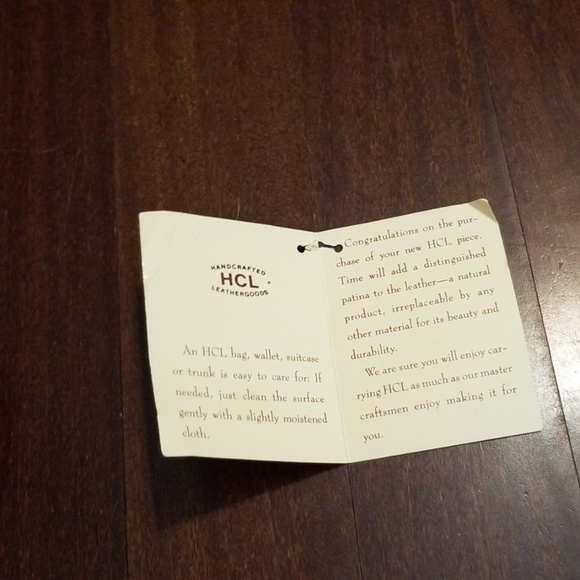 HANDCRAFTED
HCL
LEATHERGOODS
An HCL bag, wallet, suitcase
or trunk is easy to care for: If
needed, just clean the surface
gently with a slightly moistened
cloth.
Congratulations on the pur-
chase of your new HCL piece.
Time will add a distinguished
patina to the leather—a natural
product, irreplaceable by any
other material for its beauty and
durability.
We are sure you will enjoy car-
rying HCL as much as our master
craftsmen enjoy making it for
you.